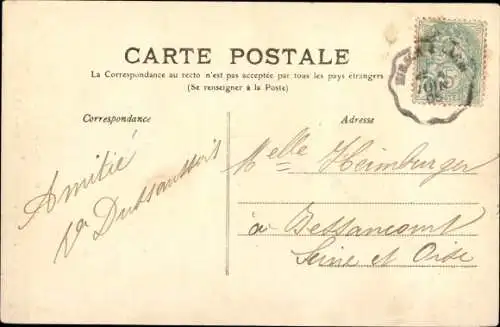 CARTE POSTALE
La Correspondance au recto n'est pas acceptée par tous les pays étrangers
(Se renseigner à la Poste)
Correspondance
Adresse
Amitié
Melle Heimburger
à Bessancourt
Seine et Oise